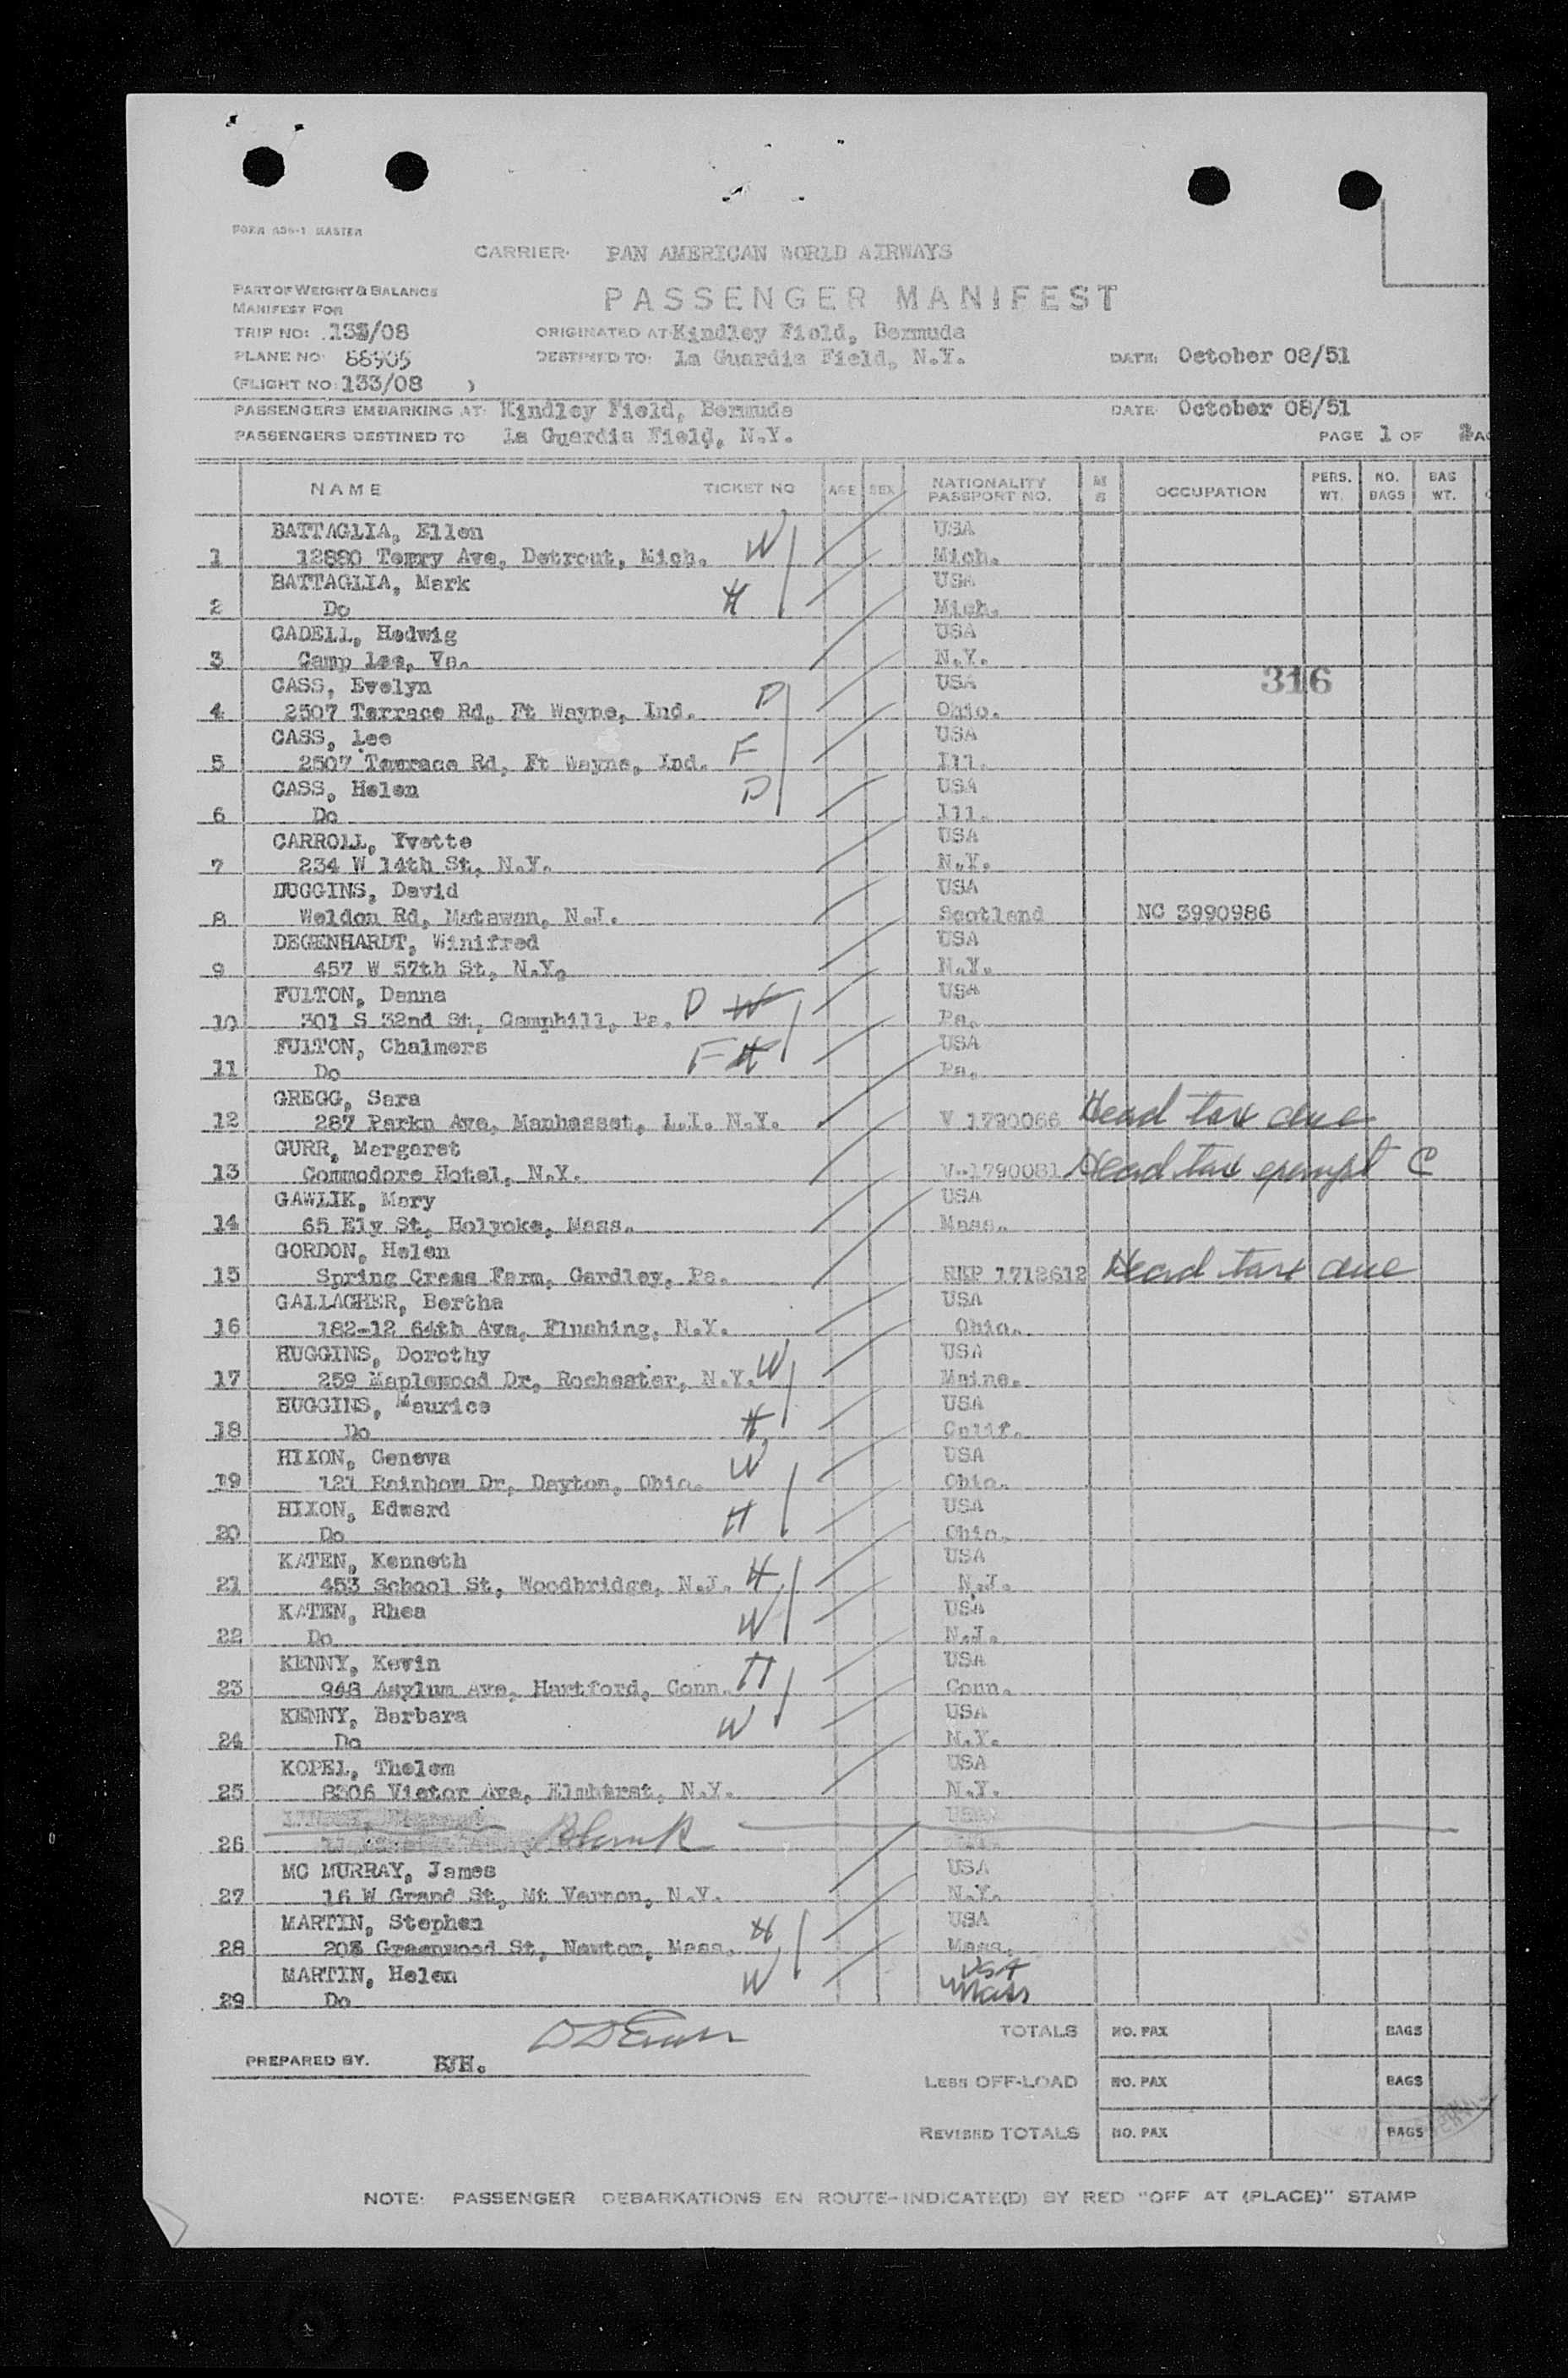 FORM 036-1 MASTER
CARRIER· PAN AMERICAN WORLD AIRWAYS
PART OF WEIGHT & BALANCE
MANIFEST FOR
PASSENGER MANIFEST
TRIP NO: 133/08
ORIGINATED AT· Kindley Field, Bermuda
PLANE NO· 88905
DESTINED TO· La Guardia Field, N.Y.
DATE: October 08/51
(FLIGHT NO: 133/08 )
PASSENGERS EMBARKING AT· Kindley Field, Bermuda
DATE· October 08/51
PASSENGERS DESTINED TO La Guardia Field, N.Y.
PAGE 1 OF
NAME TICKET NO AGE SEX NATIONALITY PASSPORT NO. M S OCCUPATION PERS. WT. NO. BAGS BAG WT.
BATTAGLIA, Ellen W USA
1 12880 Temry Ave, Detrout, Mich. Mich.
BATTAGLIA, Mark USA
2 Do H Mich.
CADELL, Hedwig USA
3 Camp Lee, Va. N.Y.
316
CASS, Evelyn D USA
4 2507 Terrace Rd, Ft Wayne, Ind. Ohio.
CASS, Lee USA
5 2507 Terrace Rd, Ft Wayne, Ind. F Ill.
CASS, Helen D USA
6 Do Ill.
CARROLL, Yvette USA
7 234 W 14th St, N.Y. N.Y.
DUGGINS, David USA
8 Weldon Rd, Matawan, N.J. Scotland NC 3990986
DEGENHARDT, Winifred USA
9 457 W 57th St, N.Y. N.Y.
FULTON, Danna D W USA
10 301 S 32nd St, Camphill, Pa. Pa.
FULTON, Chalmers F H USA
11 Do Pa.
GREGG, Sara
12 287 Parkn Ave, Manhasset, L.I. N.Y. V 1790066 Head tax due
GURR, Margaret
13 Commodore Hotel, N.Y. V-1790081 Head tax exempt C
GAWLIK, Mary USA
14 65 Ely St, Holyoke, Mass. Mass.
GORDON, Helen
15 Spring Cress Farm, Gardley, Pa. REP 1712612 Head tax due
GALLAGHER, Bertha USA
16 182-12 64th Ave, Flushing, N.Y. Ohio.
HUGGINS, Dorothy USA
17 259 Maplewood Dr, Rochester, N.Y. W Maine.
HUGGINS, Maurice USA
18 Do H Calif.
HIXON, Geneva W USA
19 121 Rainbow Dr, Dayton, Ohio. Ohio.
HIXON, Edward H USA
20 Do Ohio.
KATEN, Kenneth USA
21 453 School St, Woodbridge, N.J. H N.J.
KATEN, Rhea USA
22 Do W N.J.
KENNY, Kevin H USA
23 948 Asylum Ave, Hartford, Conn. Conn.
KENNY, Barbara USA
24 Do W N.Y.
KOPEL, Thelem USA
25 8306 Vietor Ave, Elmhurst, N.Y. N.Y.
26 Blank
MC MURRAY, James USA
27 16 W Grand St, Mt Vernon, N.Y. N.Y.
MARTIN, Stephen H USA
28 203 Greenwood St, Newton, Mass. Mass.
MARTIN, Helen W USA
29 Do Mass
TOTALS NO. PAX BAGS
PREPARED BY. BJH.
LESS OFF-LOAD NO. PAX BAGS
REVISED TOTALS NO. PAX BAGS
NOTE: PASSENGER DEBARKATIONS EN ROUTE-INDICATE(D) BY RED "OFF AT (PLACE)" STAMP